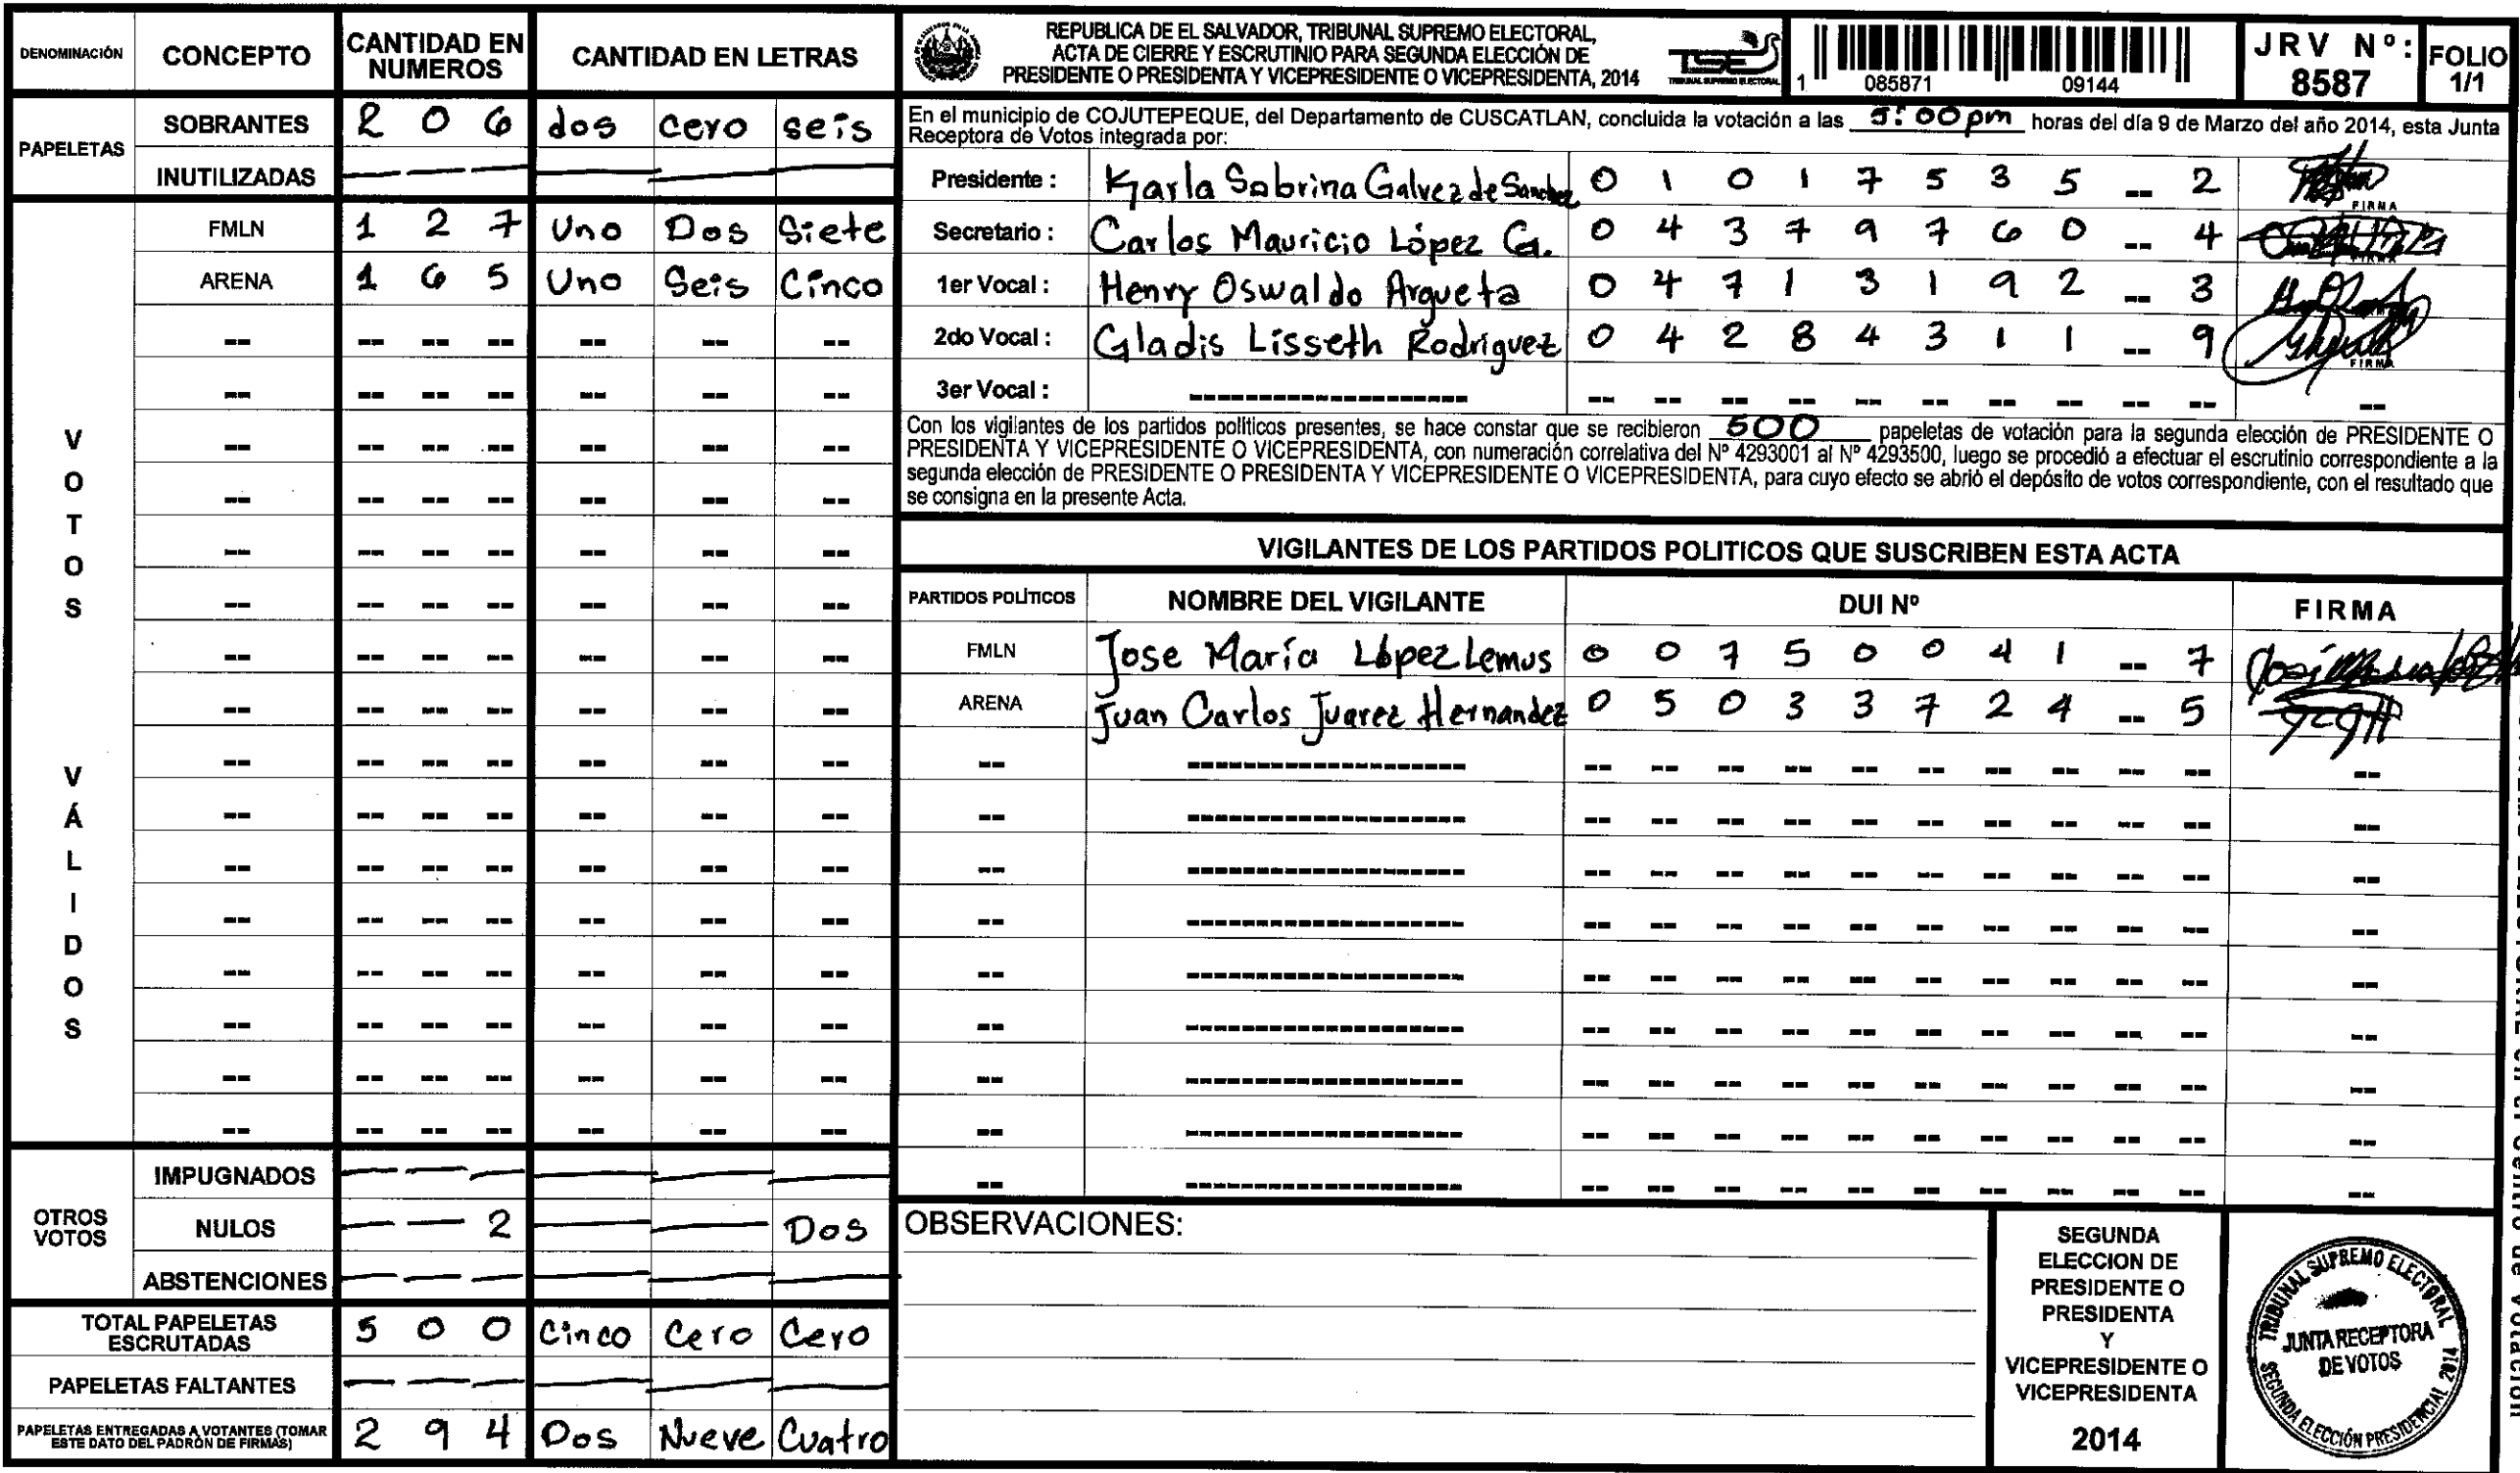 DENOMINACIÓN CONCEPTO CANTIDAD EN NUMEROS CANTIDAD EN LETRAS
PAPELETAS
SOBRANTES 2 0 6 dos cero seis
INUTILIZADAS — — — — — —
VOTOS VÁLIDOS
FMLN 1 2 7 Uno Dos Siete
ARENA 1 6 5 Uno Seis Cinco
OTROS VOTOS
IMPUGNADOS — — — — — —
NULOS — — 2 — — Dos
ABSTENCIONES — — — — — —
TOTAL PAPELETAS ESCRUTADAS 5 0 0 Cinco Cero Cero
PAPELETAS FALTANTES — — — — — —
PAPELETAS ENTREGADAS A VOTANTES (TOMAR ESTE DATO DEL PADRÓN DE FIRMAS) 2 9 4 Dos Nueve Cuatro
REPUBLICA DE EL SALVADOR, TRIBUNAL SUPREMO ELECTORAL,
ACTA DE CIERRE Y ESCRUTINIO PARA SEGUNDA ELECCIÓN DE
PRESIDENTE O PRESIDENTA Y VICEPRESIDENTE O VICEPRESIDENTA, 2014
TSE
TRIBUNAL SUPREMO ELECTORAL
1 085871 09144
JRV Nº: 8587
FOLIO 1/1
En el municipio de COJUTEPEQUE, del Departamento de CUSCATLAN, concluida la votación a las 5:00 pm horas del día 9 de Marzo del año 2014, esta Junta
Receptora de Votos integrada por:
Presidente : Karla Sabrina Galvez de Sanchez 0 1 0 1 7 5 3 5 -- 2 FIRMA
Secretario : Carlos Mauricio López G. 0 4 3 7 9 7 6 0 -- 4 FIRMA
1er Vocal : Henry Oswaldo Argueta 0 4 7 1 3 1 9 2 -- 3
2do Vocal : Gladis Lisseth Rodríguez 0 4 2 8 4 3 1 1 -- 9 FIRMA
3er Vocal : ------------------- -- -- -- -- -- -- -- -- -- -- --
Con los vigilantes de los partidos políticos presentes, se hace constar que se recibieron 500 papeletas de votación para la segunda elección de PRESIDENTE O
PRESIDENTA Y VICEPRESIDENTE O VICEPRESIDENTA, con numeración correlativa del Nº 4293001 al Nº 4293500, luego se procedió a efectuar el escrutinio correspondiente a la
segunda elección de PRESIDENTE O PRESIDENTA Y VICEPRESIDENTE O VICEPRESIDENTA, para cuyo efecto se abrió el depósito de votos correspondiente, con el resultado que
se consigna en la presente Acta.
VIGILANTES DE LOS PARTIDOS POLITICOS QUE SUSCRIBEN ESTA ACTA
PARTIDOS POLÍTICOS NOMBRE DEL VIGILANTE DUI Nº FIRMA
FMLN Jose María López Lemus 0 0 7 5 0 0 4 1 -- 7
ARENA Juan Carlos Juarez Hernandez 0 5 0 3 3 7 2 4 -- 5
OBSERVACIONES:
SEGUNDA
ELECCION DE
PRESIDENTE O
PRESIDENTA
Y
VICEPRESIDENTE O
VICEPRESIDENTA
2014
TRIBUNAL SUPREMO ELECTORAL
JUNTA RECEPTORA
DE VOTOS
SEGUNDA ELECCIÓN PRESIDENCIAL 2014
en el centro de votación